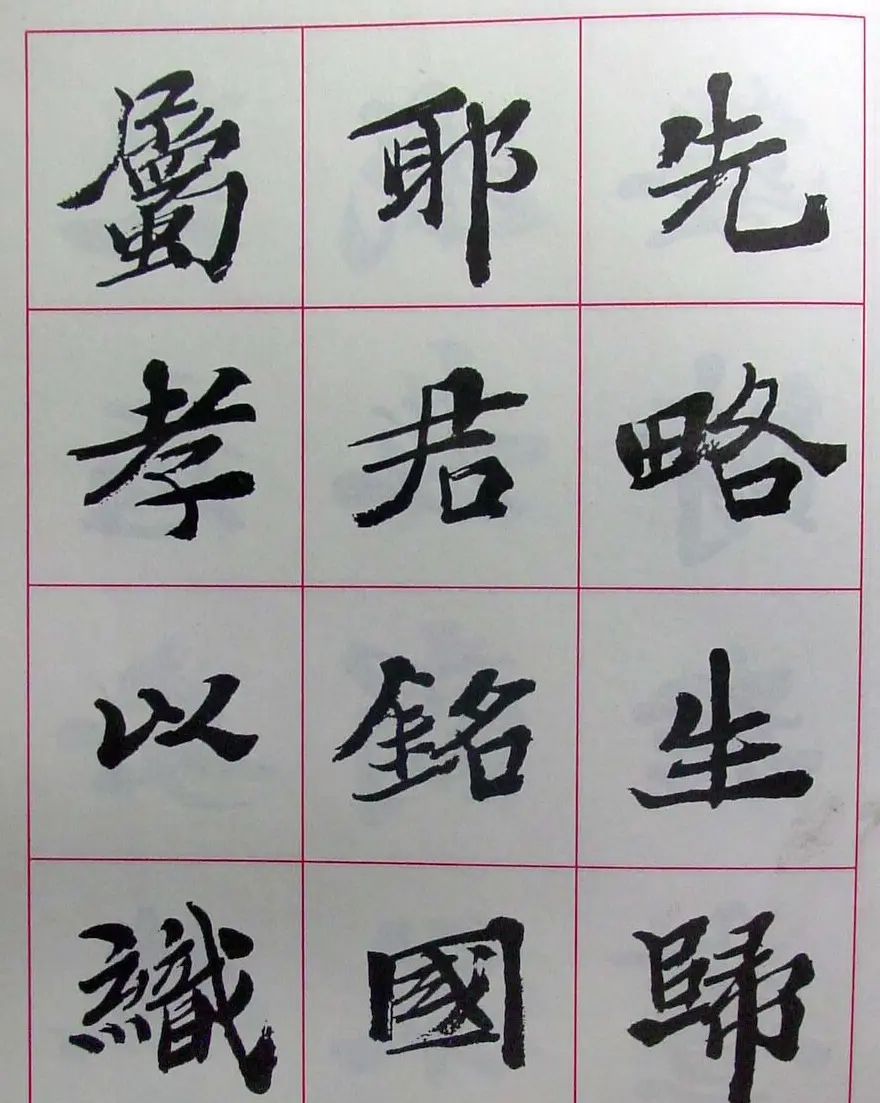 先略生歸
耶君銘國
屬孝以織